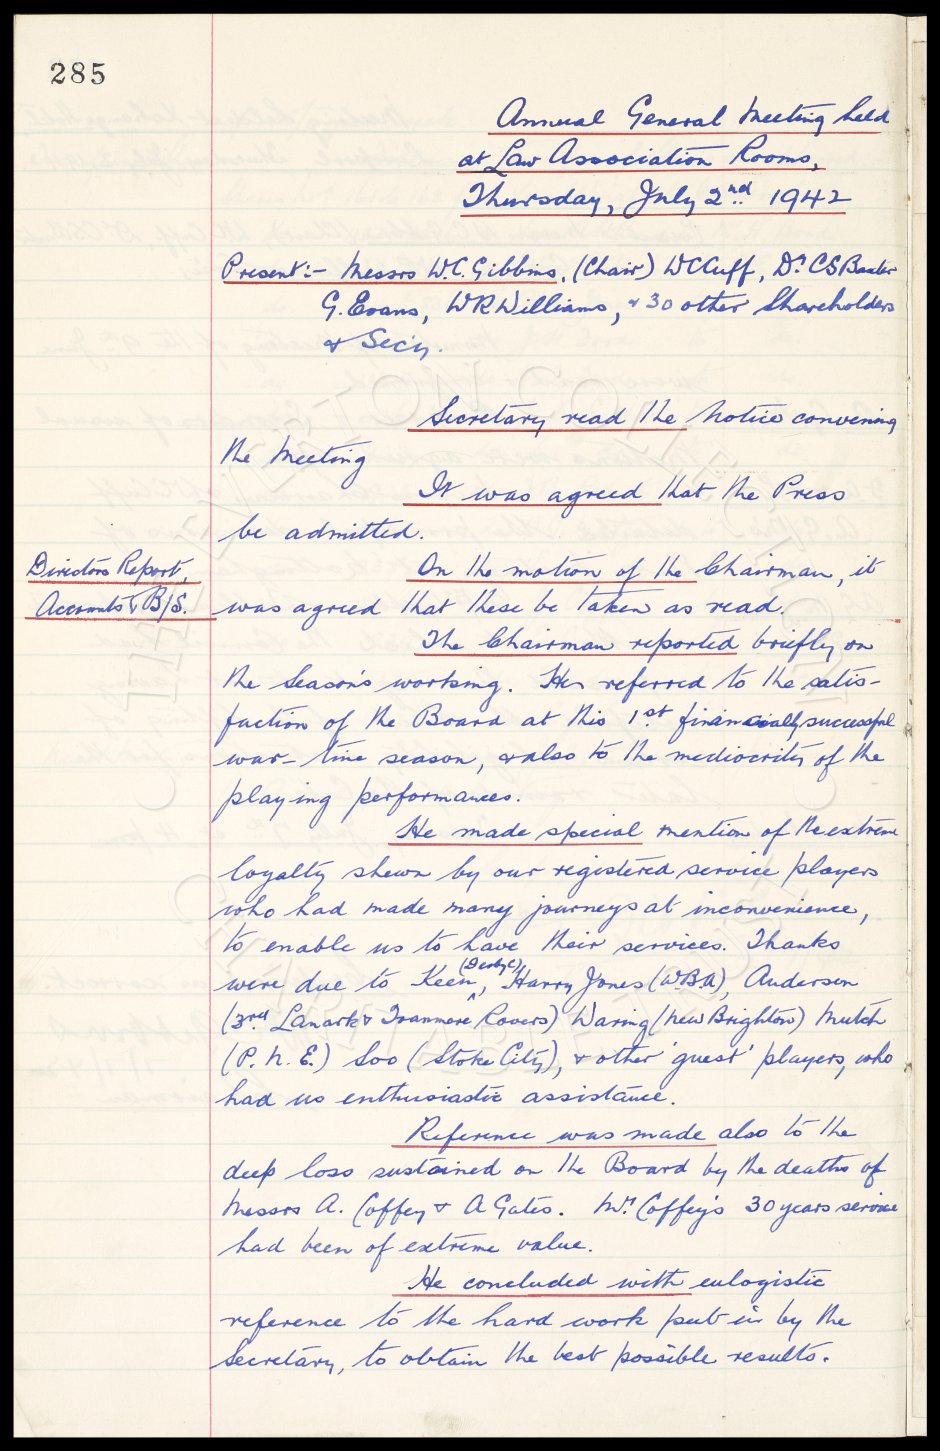 285
Annual General Meeting held
at Law Association Rooms,
Thursday, July 2nd 1942
Present:- Messrs W.C. Gibbins, (Chair) W C Cuff, Dr. C S Baxter
G. Evans, W R Williams, & 30 other Shareholders
& Sec'y.
Secretary read the Notice convening
the Meeting
It was agreed that the Press
be admitted.
Directors Report,
Accounts & B/S.
On the motion of the Chairman, it
was agreed that these be taken as read.
The Chairman reported briefly on
the Season's working. He referred to the satis-
faction of the Board at this 1st financially successful
war-time season, & also to the mediocrity of the
playing performances.
He made special mention of the extreme
loyalty shewn by our registered service players
who had made many journeys at inconvenience,
to enable us to have their services. Thanks
were due to Keen (Derby C), Harry Jones (W.B.A), Anderson
(3rd Lanark & Tranmere Rovers) Waring (New Brighton) Mutch
(P.N.E.) Soo (Stoke City), & other 'guest' players, who
had us enthusiastic assistance.
Reference was made also to the
deep loss sustained on the Board by the deaths of
Messrs A. Coffey & A Gates. Mr. Coffey's 30 years service
had been of extreme value.
He concluded with eulogistic
reference to the hard work put in by the
Secretary, to obtain the best possible results.